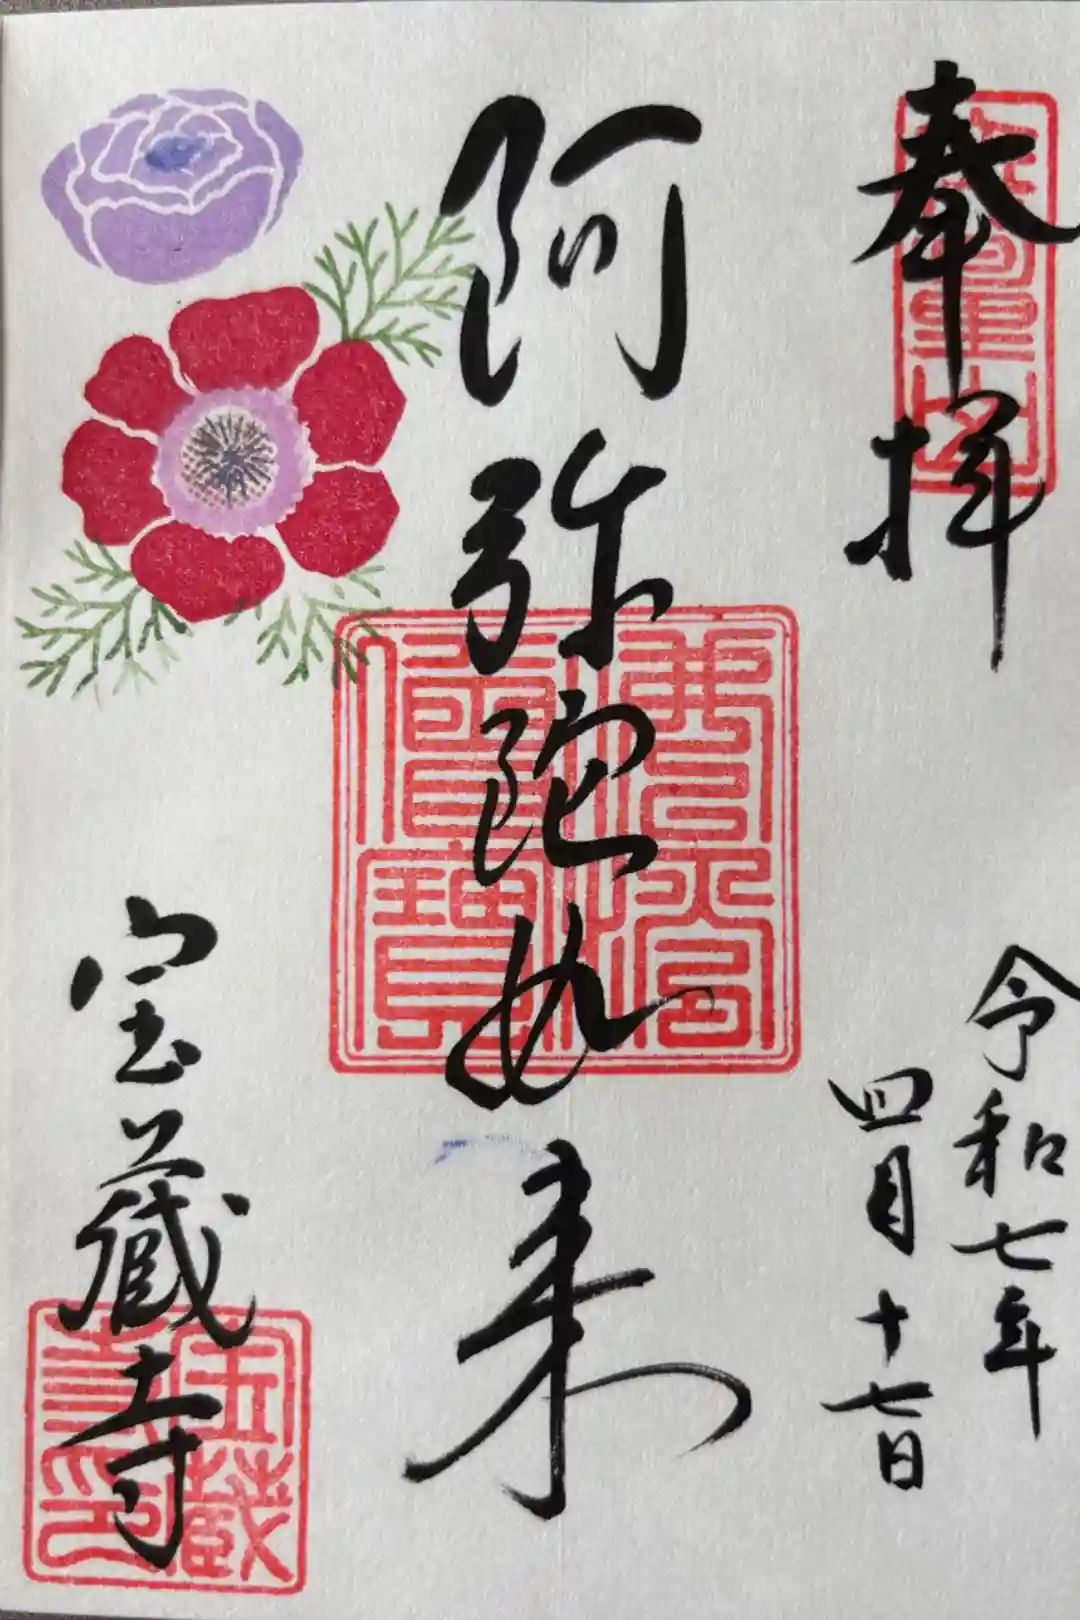 奉拝
令和七年
四月十七日
阿弥陀如来
宝蔵寺